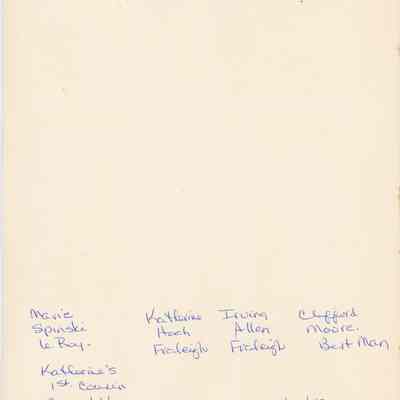 Marie Katherine Irving Clifford
Spinski Hoch Allen Moore.
LeRoy. Fraleigh Fraleigh Best Man
Katherine's
1st. Cousin